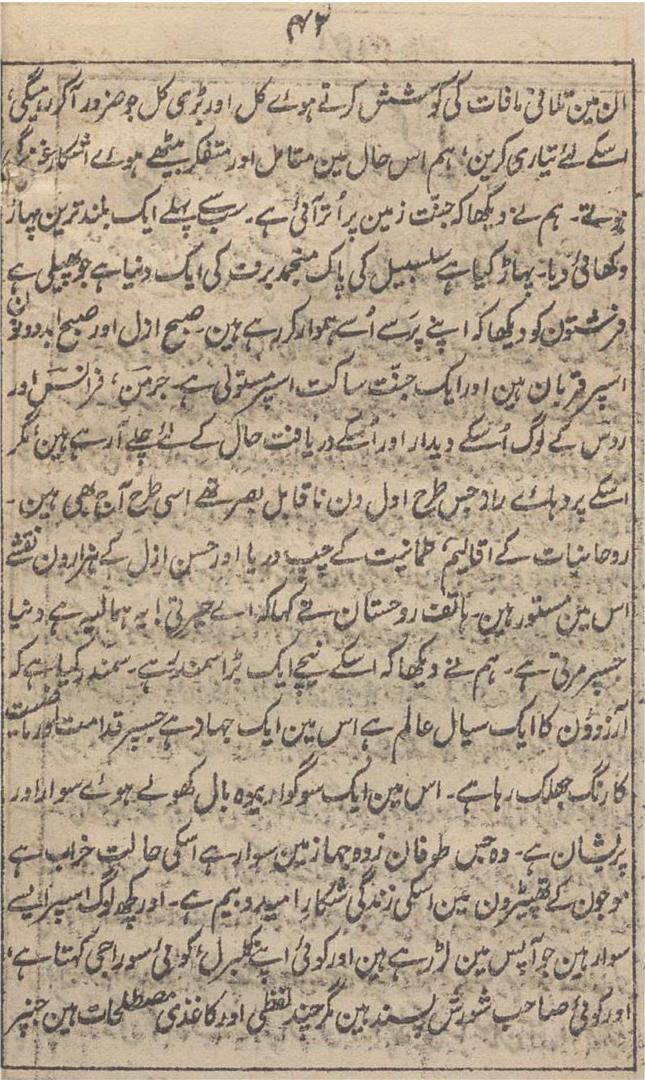 ۴۳
ان مین تلافیٔ مافات کی کوشش کرتے ہوۓ کل اور بڑی کل جو ضرور آکر رہیگی،
اسکے لئے تیاری کرین، ہم اس حال مین متامل اور متفکر بیٹھے ہوۓ اشکار
ہوتے۔ ہم نے دیکھا کہ جنّت زمین پر اُتر آئی ہے۔ سب سے پہلے ایک بلند ترین پہاڑ
دکھائی دیا۔ پہاڑ کیا ہے سلسبیل کی پاک منجمد برف کی ایک دنیا ہے جو پھیلی ہے
فرشتون کو دیکھا کہ اپنے پَر سے اُسے ہموار کر رہے ہین۔ صبح ازل اور صبح ابد دونون
اسپر قربان ہین اور ایک جنّت ساکت اسپر مستولی ہے۔ جرمن، فرانسس اور
روس کے لوگ اُسکے دیدار اور اُسکے دریافت حال کے لئے چلے آرہے ہین، مگر
اسکے پردہاۓ راز جس طرح اول دن ناقابل بصر تھے اسی طرح آج بھی ہین۔
روحانیات کے اقالیم، طمانیت کے چپ دریا اور حسن ازل کے ہزارون نقشے
اس مین مستور ہین۔ ہاتف روحستان نے کہا کہ اے حیرتی! یہ ہمالیہ ہے دنیا
جسپر مرتی ہے۔ ہم نے دیکھا کہ اسکے نیچے ایک بڑا سمندر ہے۔ سمندر کیا ہے کہ
آرزوؤن کا ایک سیال عالم ہے اس مین ایک جہاز ہے جسپر قدامت اور
کا رنگ جھلک رہا ہے۔ اس مین ایک سوگوار بیوہ بال کھولے ہوۓ سوار اور
پریشان ہے۔ وہ جس طوفان زدہ جہاز مین سوار ہے اسکی حالت خراب ہے
موجون کے تھپیڑون مین اسکی زندگی شکارِ امید و بیم ہے۔ اور کچھ لوگ اسپر ایسے
سوار ہین جو آپس مین لڑ رہے ہین اور کوئی اپنے لبرل، کوئی سوراجی کہتا ہے،
اور کوئی صاحب شورش پسند ہین مگر چند لفظی اور کاغذی مصطلحات ہین جنپر